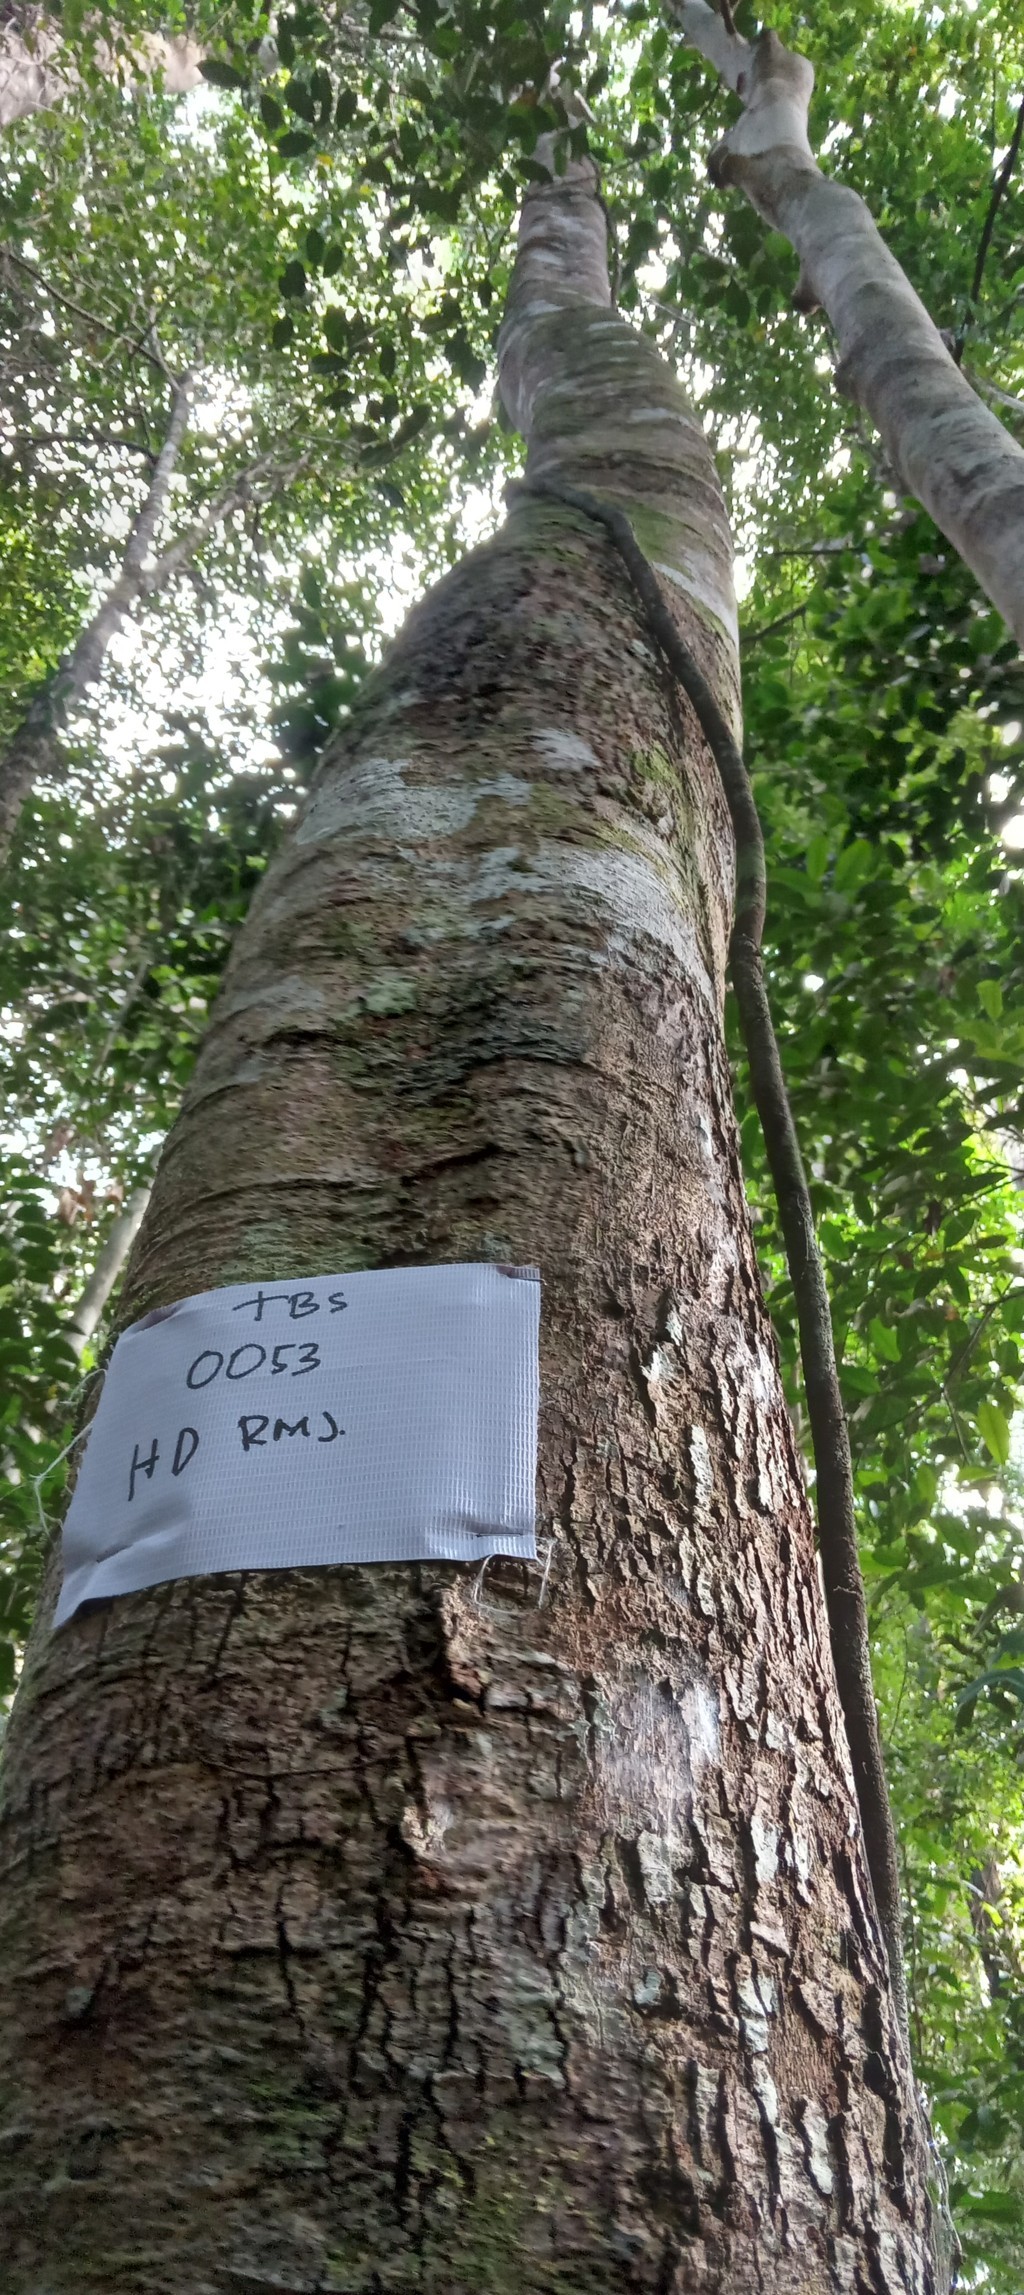 TBS
0053
HD RMJ.